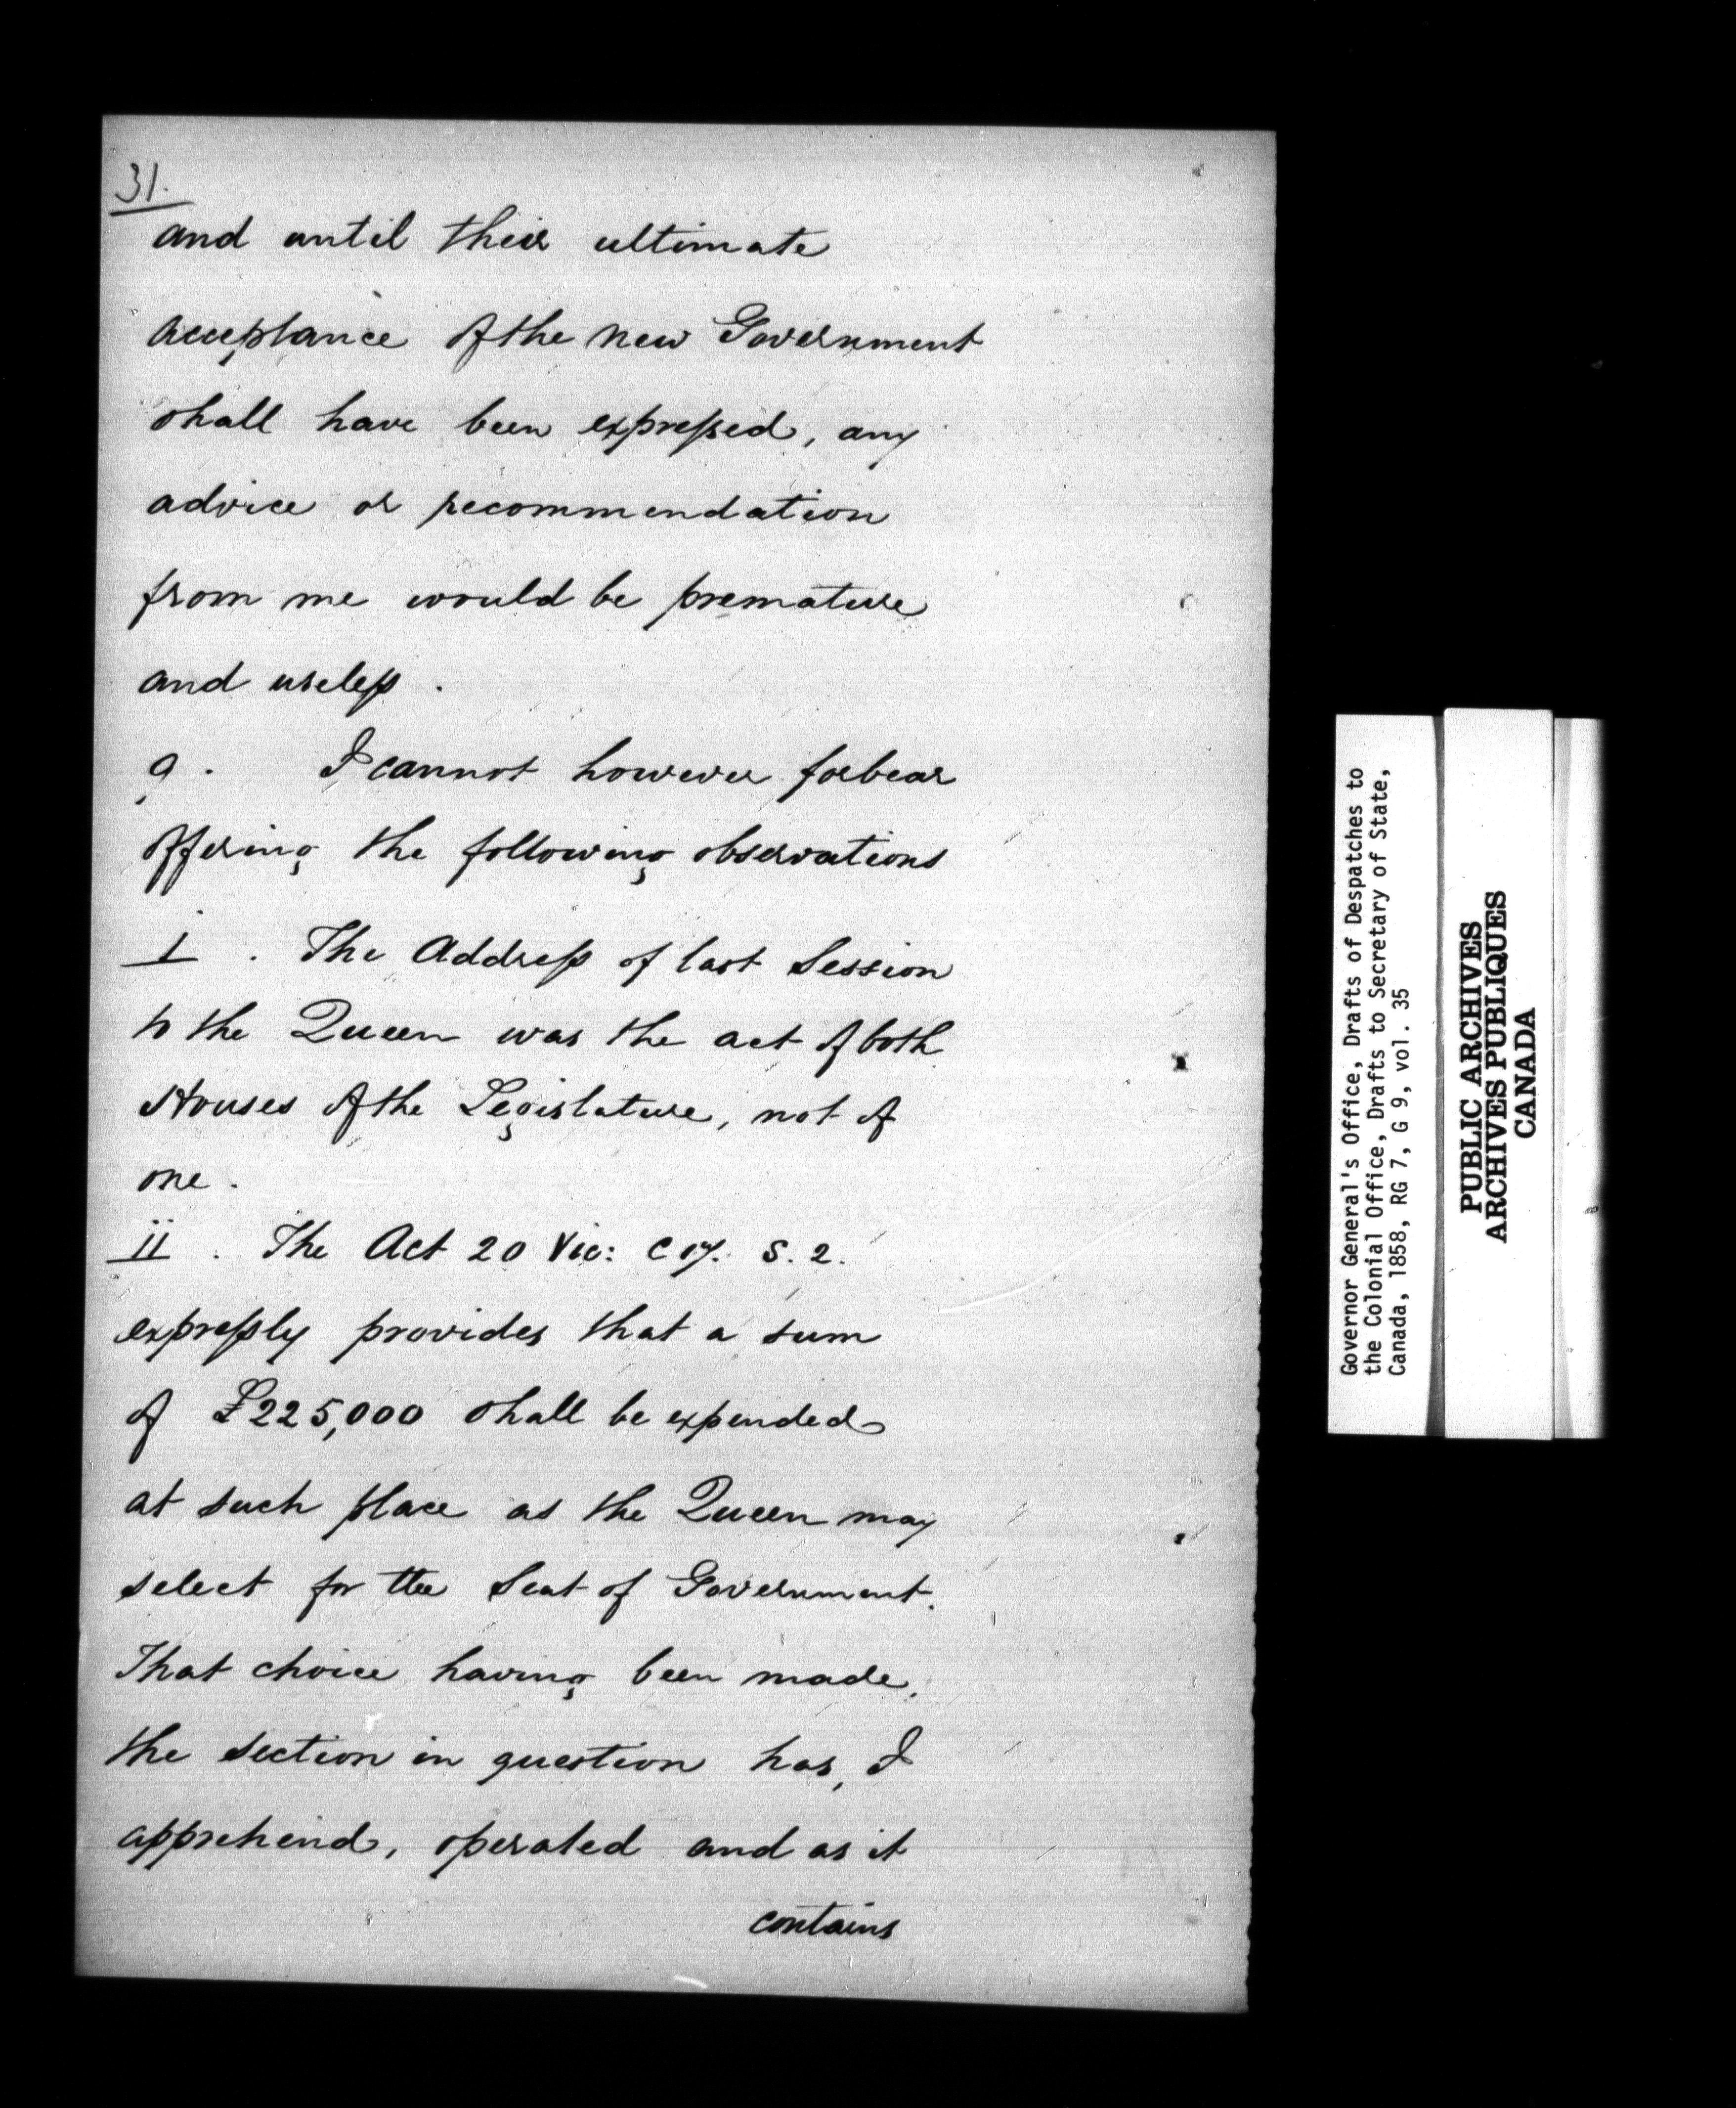 31.
and until their ultimate
acceptance of the new Government
shall have been expressed, any
advice or recommendation
from me would be premature
and useless.
9. I cannot however forbear
offering the following observations
i. The Address of last Session
to the Queen was the act of both
Houses of the Legislature, not of
one.
ii. The Act 20 Vic: c 17. S. 2.
expressly provides that a sum
of £225,000 shall be expended
at such place as the Queen may
select for the Seat of Government.
That choice having been made,
the section in question has, I
apprehend, operated and as it
contains
Governor General's Office, Drafts of Despatches to
the Colonial Office, Drafts to Secretary of State,
Canada, 1858, RG 7, G 9, vol. 35
PUBLIC ARCHIVES
ARCHIVES PUBLIQUES
CANADA